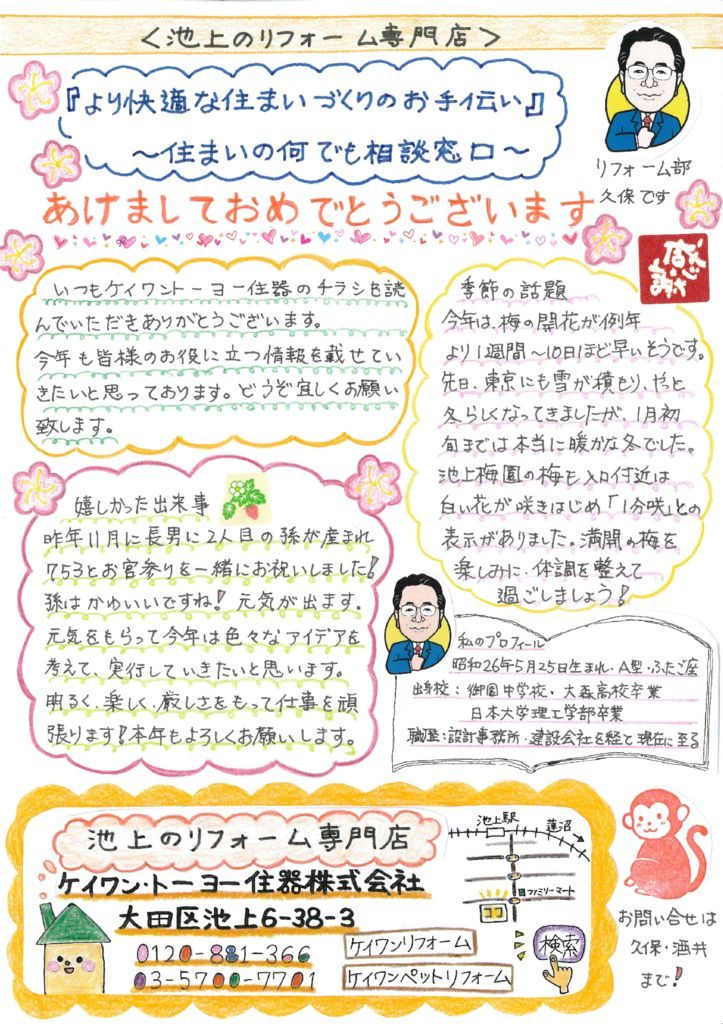 ＜池上のリフォーム専門店＞
『より快適な住まいづくりのお手伝い』
～住まいの何でも相談窓口～
リフォーム部
久保です
あけましておめでとうございます
感謝
いつもケイワントーヨー住器のチラシを読
んでいただきありがとうございます。
今年も皆様のお役に立つ情報を載せてい
きたいと思っております。どうぞ宜しくお願い
致します。
季節の話題
今年は、梅の開花が例年
より1週間～10日ほど早いそうです。
先日、東京にも雪が積もり、やっと
冬らしくなってきましたが、1月初
旬までは本当に暖かな冬でした。
池上梅園の梅も入口付近は
白い花が咲きはじめ「1分咲」との
表示がありました。満開の梅を
楽しみに、体調を整えて
過ごしましょう!
嬉しかった出来事
昨年11月に長男に2人目の孫が産まれ
753とお宮参りを一緒にお祝いしました!
孫はかわいいですね! 元気が出ます。
元気をもらって今年は色々なアイデアを
考えて、実行していきたいと思います。
明るく、楽しく、厳しさをもって仕事を頑
張ります!本年もよろしくお願いします。
私のプロフィール
昭和26年5月25日生まれ・A型・ふたご座
出身校：御園中学校・大森高校卒業
日本大学理工学部卒業
職歴：設計事務所・建設会社を経て現在に至る
池上のリフォーム専門店
ケイワン・トーヨー住器株式会社
大田区池上6-38-3
0120-881-366
03-5700-7701
ケイワンリフォーム
ケイワンペットリフォーム
池上駅
蓮沼
ファミリーマート
ココ
検索
お問い合せは
久保・酒井
まで!